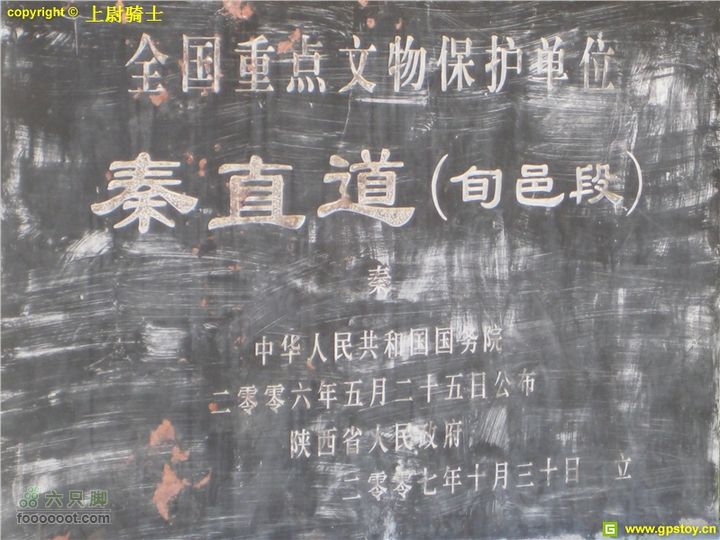 copyright © 上尉骑士
全国重点文物保护单位
秦直道(旬邑段)
秦
中华人民共和国国务院
二零零六年五月二十五日公布
陕西省人民政府
二零零七年十月三十日 立
六只脚
foooooot.com
G www.gpstoy.cn